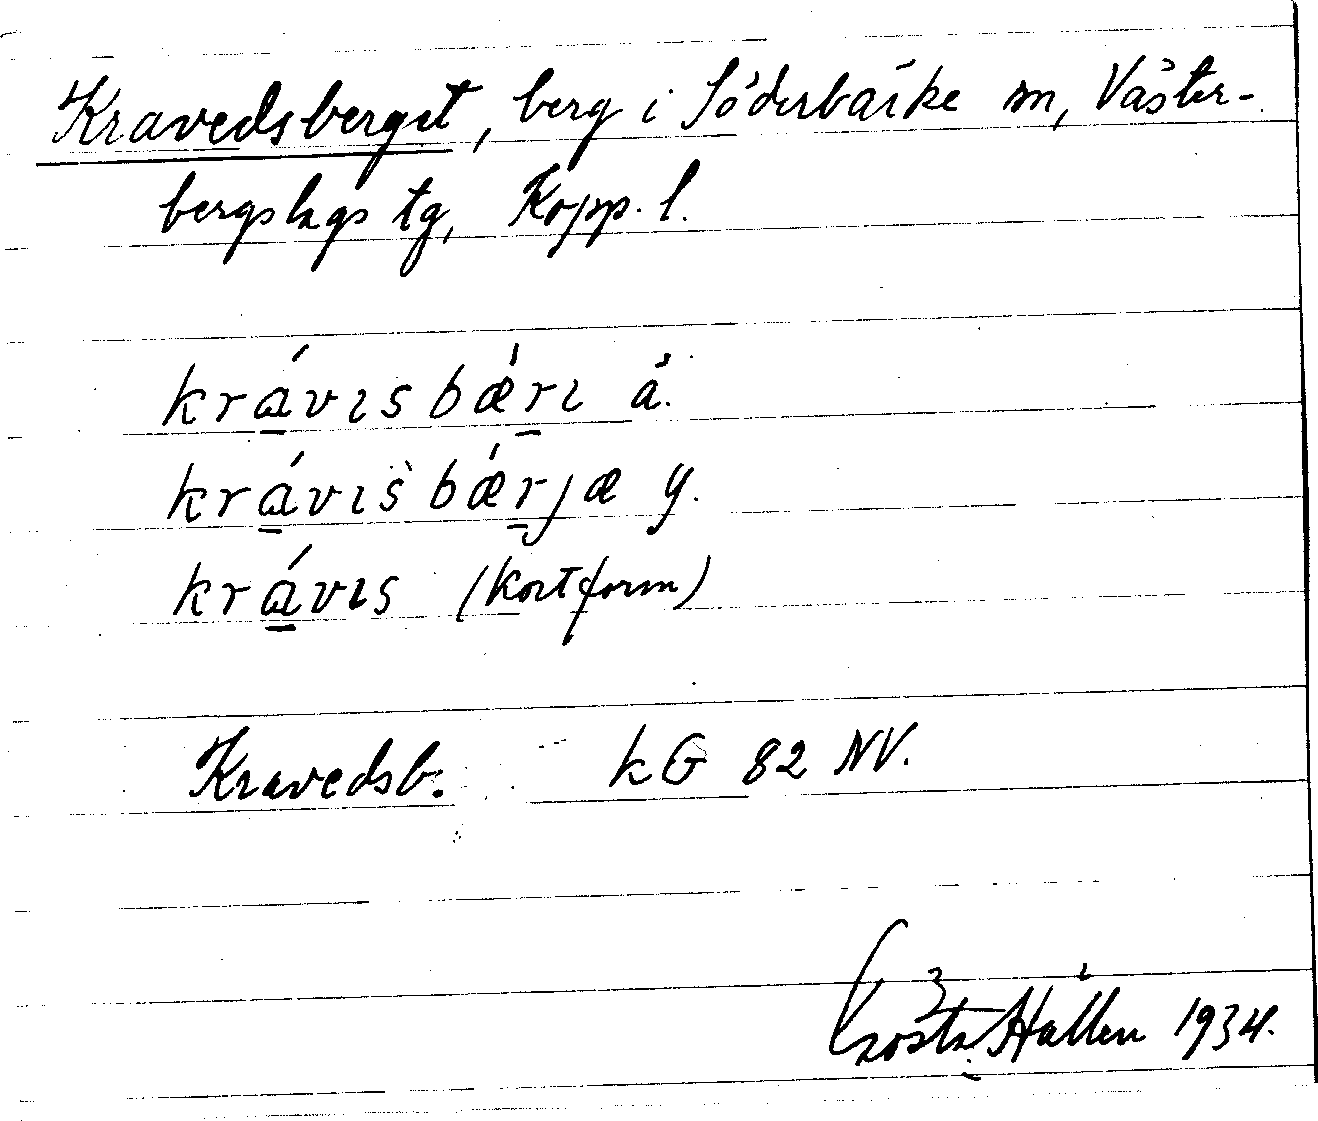 Kravedsberget, berg i Söderbärke sn, Väster-
bergslags tg, Kopp. l.
krá̱vɩsbǽṟɩ ä.
krá̱vɩs̀bǽṟjæ y.
krá̱vɩs (kortform)
Kravedsb. kG 82 NV.
Gösta Hallén 1934.